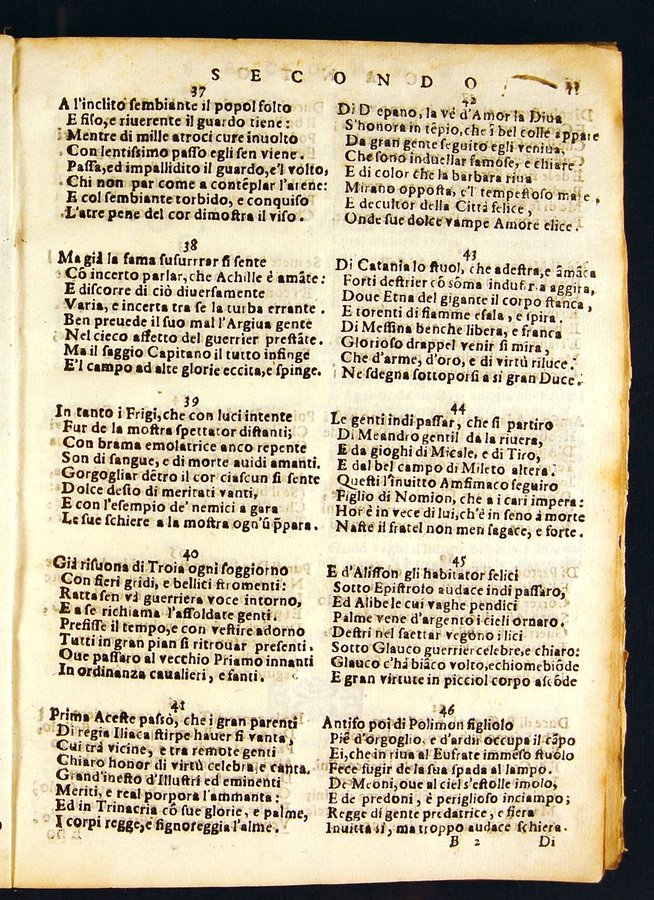 SECONDO
37
A l'inclito ſembiante il popol folto
E fiſo,e riuerente il guardo tiene:
Mentre di mille atroci cure inuolto
Con lentiſſimo paſſo egli ſen viene.
Paſſa,ed impallidito il guardo,e'l volto,
Chi non par come a contẽplar l'arene:
E col ſembiante torbido, e conquiſo
L'atre pene del cor dimoſtra il viſo.
38
Ma già la fama ſuſurrrar ſi ſente
Cõ incerto parlar,che Achille è amãte:
E diſcorre di ciò diuerſamente
Varia, e incerta tra ſe la turba errante.
Ben preuede il ſuo mal l'Argiua gente
Nel cieco affetto del guerrier preſtãte.
Ma il ſaggio Capitano il tutto infinge
E'l campo ad alte glorie eccita,e ſpinge.
39
In tanto i Frigi,che con luci intente
Fur de la moſtra ſpettator diſtanti;
Con brama emolatrice anco repente
Son di ſangue, e di morte auidi amanti.
Gorgogliar dẽtro il cor ciaſcun ſi ſente
Dolce deſio di meritati vanti,
E con l'eſempio de' nemici a gara
Le ſue ſchiere a la moſtra ogn'ſi p̃para.
40
Già riſuona di Troia ogni ſoggiorno
Con fieri gridi, e bellici ſtromenti:
Ratta ſen và guerriera voce intorno,
E a ſe richiama l'aſſoldate genti.
Prefiſſe il tempo,e con veſtire adorno
Tutti in gran pian ſi ritrouar preſenti.
Que paſſaro al vecchio Priamo innanti
In ordinanza caualieri, e fanti.
41
Prima Aceſte paſsò, che i gran parenti
Di regia Iliaca ſtirpe hauer ſi vanta,
Cui trà vicine, e tra remote genti
Chiaro honor di virtù celebra,e canta.
Grand'ineſto d'Illuſtri ed eminenti
Meriti, e real porpora l'ammanta:
Ed in Trinacria cõ ſue glorie, e palme,
I corpi regge,e ſignoreggia l'alme.
42
Di D epano, la vè d'Amor la Diua
S'honora in tẽpio,che i bel colle appare
Da gran gente ſeguito egli veniua,
Che ſono in duellar famoſe, e chiare
E di color che la barbara riua
Mirano oppoſta, e'l tempeſtoſo mare,
E de cultor della Città felice,
Onde ſue dolce vampe Amore elice.
43
Di Catania lo ſtuol, che adeſtra,e ãmãca
Forti deſtrier cõ sõma induſtria aggira,
Doue Etna del gigante il corpo ſtanca,
E torenti di fiamme eſala, e ſpira.
Di Meſſina benche libera, e franca
Glorioſo drappel venir ſi mira,
Che d'arme, d'oro, e di virtù riluce.
Ne ſdegna ſottoporſi a sì gran Duce.
44
Le genti indi paſſar, che ſi partiro
Di Meandro gentil da la riuera,
E da gioghi di Micale, e di Tiro,
E dal bel campo di Mileto altera.
Queſti l'inuitto Amfimaco ſeguiro
Figlio di Nomion, che a i cari impera:
Hor è in vece di lui,ch'è in ſeno à morte
Naſte il fratel non men ſagace, e forte.
45
E d'Aliſſon gli habitator felici
Sotto Epiſtrofo audace indi paſſaro,
Ed Alibe le cui vaghe pendici
Palme vene d'argento i cieli ornaro.
Deſtri nel ſaettar vẽgono i lici
Sotto Glauco guerrier celebre,e chiaro:
Glauco c'hà biãco volto,e chiome biõde
E gran virtute in picciol corpo aſcõde
46
Antifo poi di Polimon figliolo
Piẽ d'orgoglio, e d'ardir occupa il cãpo
Ei,che in riua al Eufrate immẽſo ſtuolo
Fece fugir de la ſua ſpada al lampo.
De Meoni,oue al ciel s'eſtolle imolo,
E de predoni, è periglioſo inciampo;
Regge di gente predatrice, e fiera
Inuitta sì, ma troppo audace ſchiera.
B 2 Di